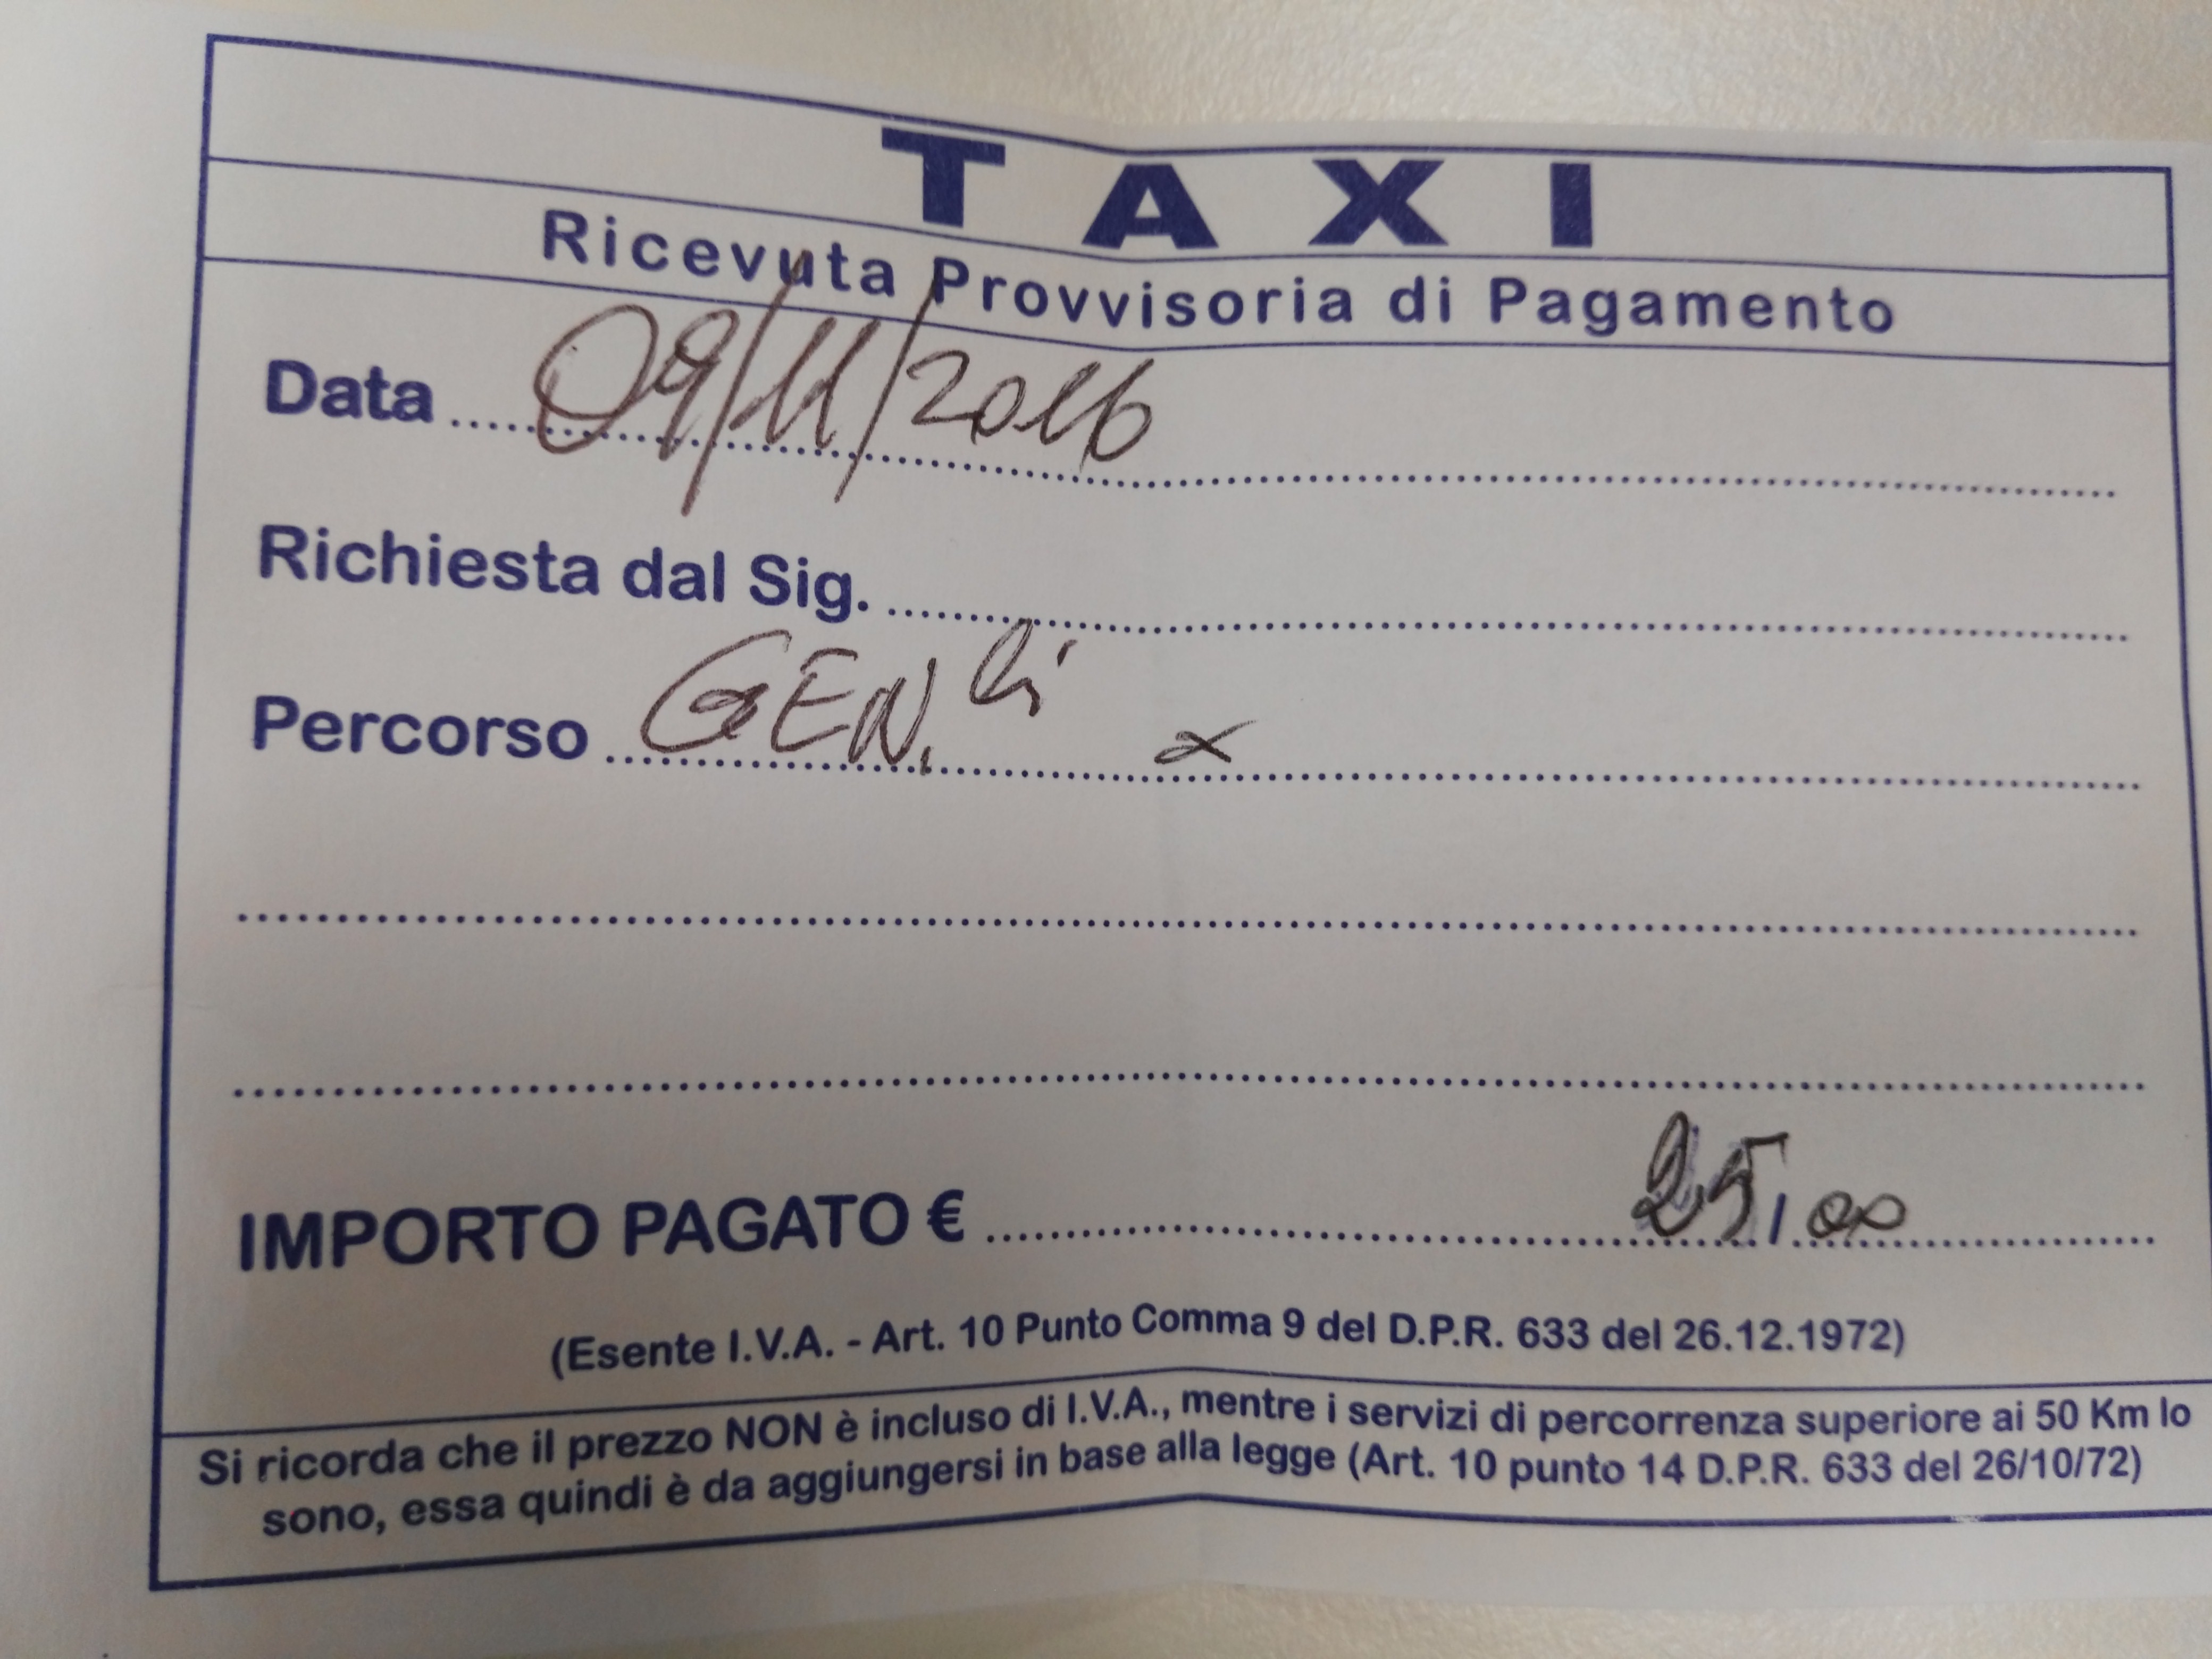 TAXI
Ricevuta Provvisoria di Pagamento
Data 09/11/2016
Richiesta dal Sig.
Percorso GEN.li
IMPORTO PAGATO € 25,00
(Esente I.V.A. - Art. 10 Punto Comma 9 del D.P.R. 633 del 26.12.1972)
Si ricorda che il prezzo NON è incluso di I.V.A., mentre i servizi di percorrenza superiore ai 50 Km lo
sono, essa quindi è da aggiungersi in base alla legge (Art. 10 punto 14 D.P.R. 633 del 26/10/72)